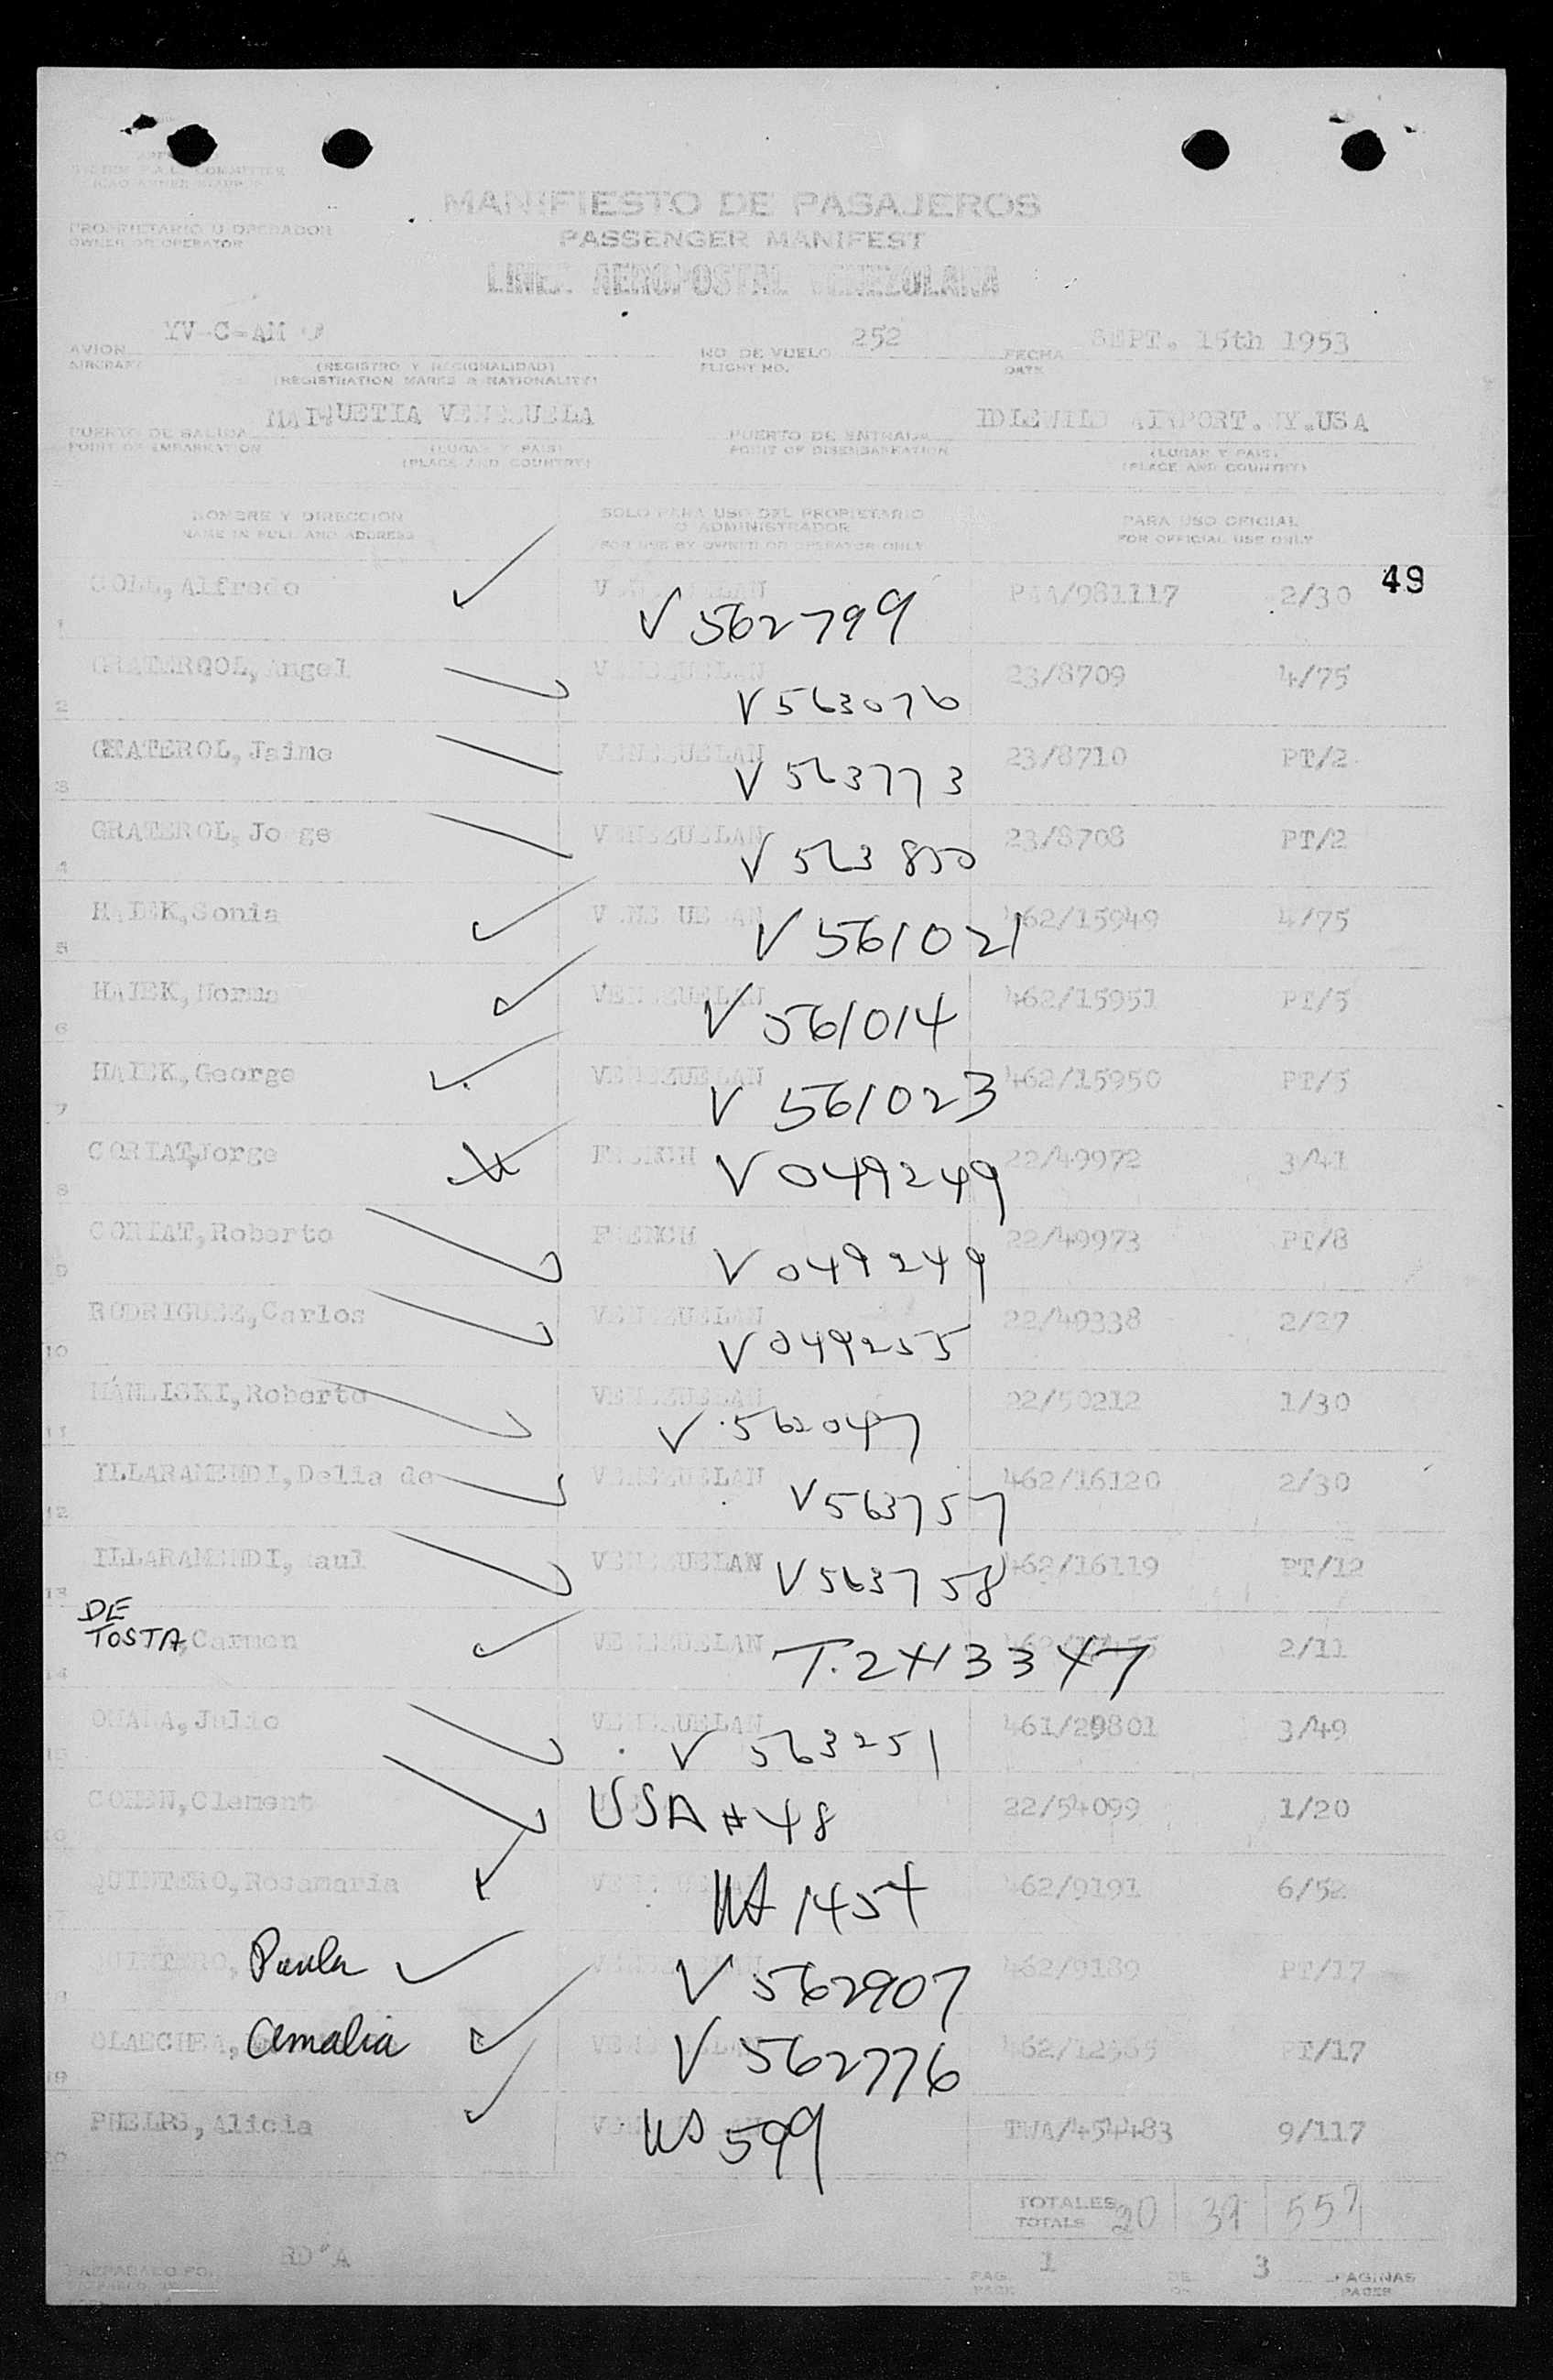 PROPIETARIO U OPERADOR
OWNER OR OPERATOR
MANIFIESTO DE PASAJEROS
PASSENGER MANIFEST
LINEA AEROPOSTAL VENEZOLANA
AVION YV-C-AM NO. DE VUELO 252 FECHA SEPT. 15th 1953
AIRCRAFT (REGISTRO Y NACIONALIDAD) FLIGHT NO. DATE
(REGISTRATION MARKS & NATIONALITY)
PUERTO DE SALIDA MAIQUETIA VENEZUELA PUERTO DE ENTRADA IDLEWILD AIRPORT.NY.USA
POINT OF EMBARKATION (LUGAR Y PAIS) POINT OF DISEMBARKATION (LUGAR Y PAIS)
(PLACE AND COUNTRY) (PLACE AND COUNTRY)
NOMBRE Y DIRECCION SOLO PARA USO DEL PROPIETARIO PARA USO OFICIAL
NAME IN FULL AND ADDRESS O ADMINISTRADOR FOR OFFICIAL USE ONLY
FOR USE BY OWNER OR OPERATOR ONLY
49
1 COLL, Alfredo VENEZUELAN V 562799 PAA/981117 2/30
2 Angel VENEZUELAN V 563076 23/8709 4/75
3 GRATEROL, Jaime VENEZUELAN V 563773 23/8710 PT/2
4 GRATEROL, Jorge VENEZUELAN V 563850 23/8708 PT/2
5 HAIEK, Sonia VENEZUELAN V 561021 462/15949 4/75
6 HAIEK, Norma VENEZUELAN V 561014 462/15951 PT/5
7 HAIEK, George VENEZUELAN V 561023 462/15950 PT/5
8 CORIAT, Jorge FRENCH V 049249 22/49972 3/41
9 CORIAT, Roberto FRENCH V 049249 22/49973 PT/8
10 RODRIGUEZ, Carlos VENEZUELAN V 049255 22/49338 2/27
11 Roberto VENEZUELAN V 562047 22/50212 1/30
12 ILLARAMENDI, Delia de VENEZUELAN V 563757 462/16120 2/30
13 ILLARAMENDI, Raul VENEZUELAN V 563758 462/16119 PT/12
14 DE TOSTA, Carmen VENEZUELAN T. 2413347 2/11
15 Julio VENEZUELAN V 563251 461/29801 3/49
COHEN, Clement USA # 48 22/54099 1/20
QUINTERO, Rosamaria VENEZUELAN 1454 462/9191 6/52
QUINTERO, Paula VENEZUELAN V 562907 462/9189 PT/17
19 OLAECHEA, Amalia VENEZUELAN V 562776 PT/17
PHELPS, Alicia 599 TWA/454483 9/117
TOTALES 20 39 557
TOTALS
RD"A
PREPARADO POR PAG. 1 DE 3 PAGINAS
PAGE OF PAGES